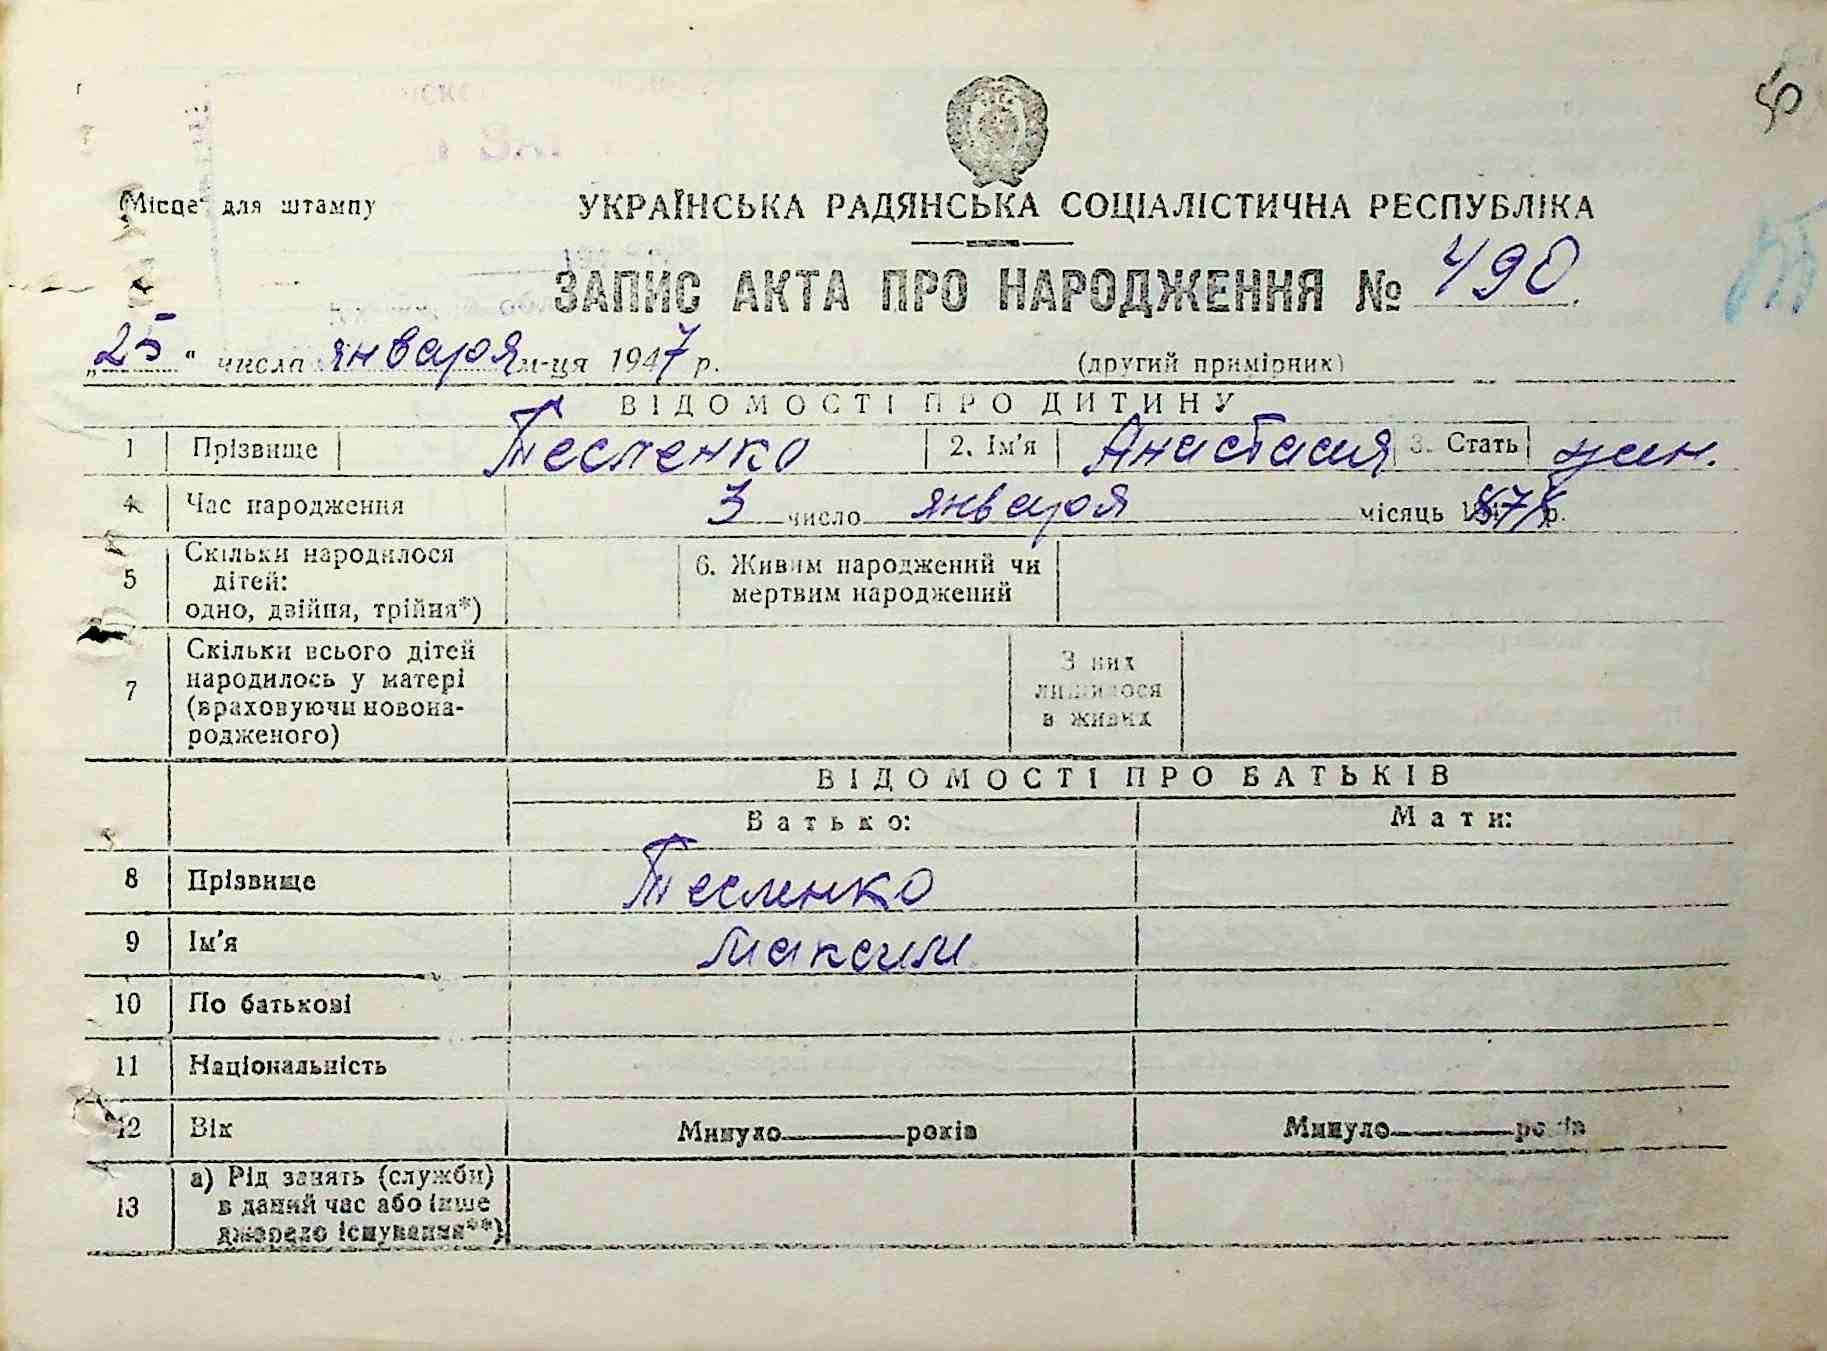 55
(Місце для штампу
УКРАЇНСЬКА РАДЯНСЬКА СОЦІАЛІСТИЧНА РЕСПУБЛІКА
ЗАПИС АКТА ПРО НАРОДЖЕННЯ № 490
„25“ числа января м-ця 1947 р. (другий примірник)
ВІДОМОСТІ ПРО ДИТИНУ
1 Прізвище Тесленко 2. Ім'я Анастасия 3. Стать жен.
4 Час народження 3 число января місяць р.
5 Скільки народилося дітей: одно, двійня, трійня*) 6. Живим народжений чи мертвим народжений
7 Скільки всього дітей народилось у матері (враховуючи новонародженого) З них лишилося в живих
ВІДОМОСТІ ПРО БАТЬКІВ
Батько: Мати:
8 Прізвище Тесленко
9 Ім'я Максим
10 По батькові
11 Національність
12 Вік Минуло років Минуло років
13 а) Рід занять (служби) в даний час або інше джерело існування**)